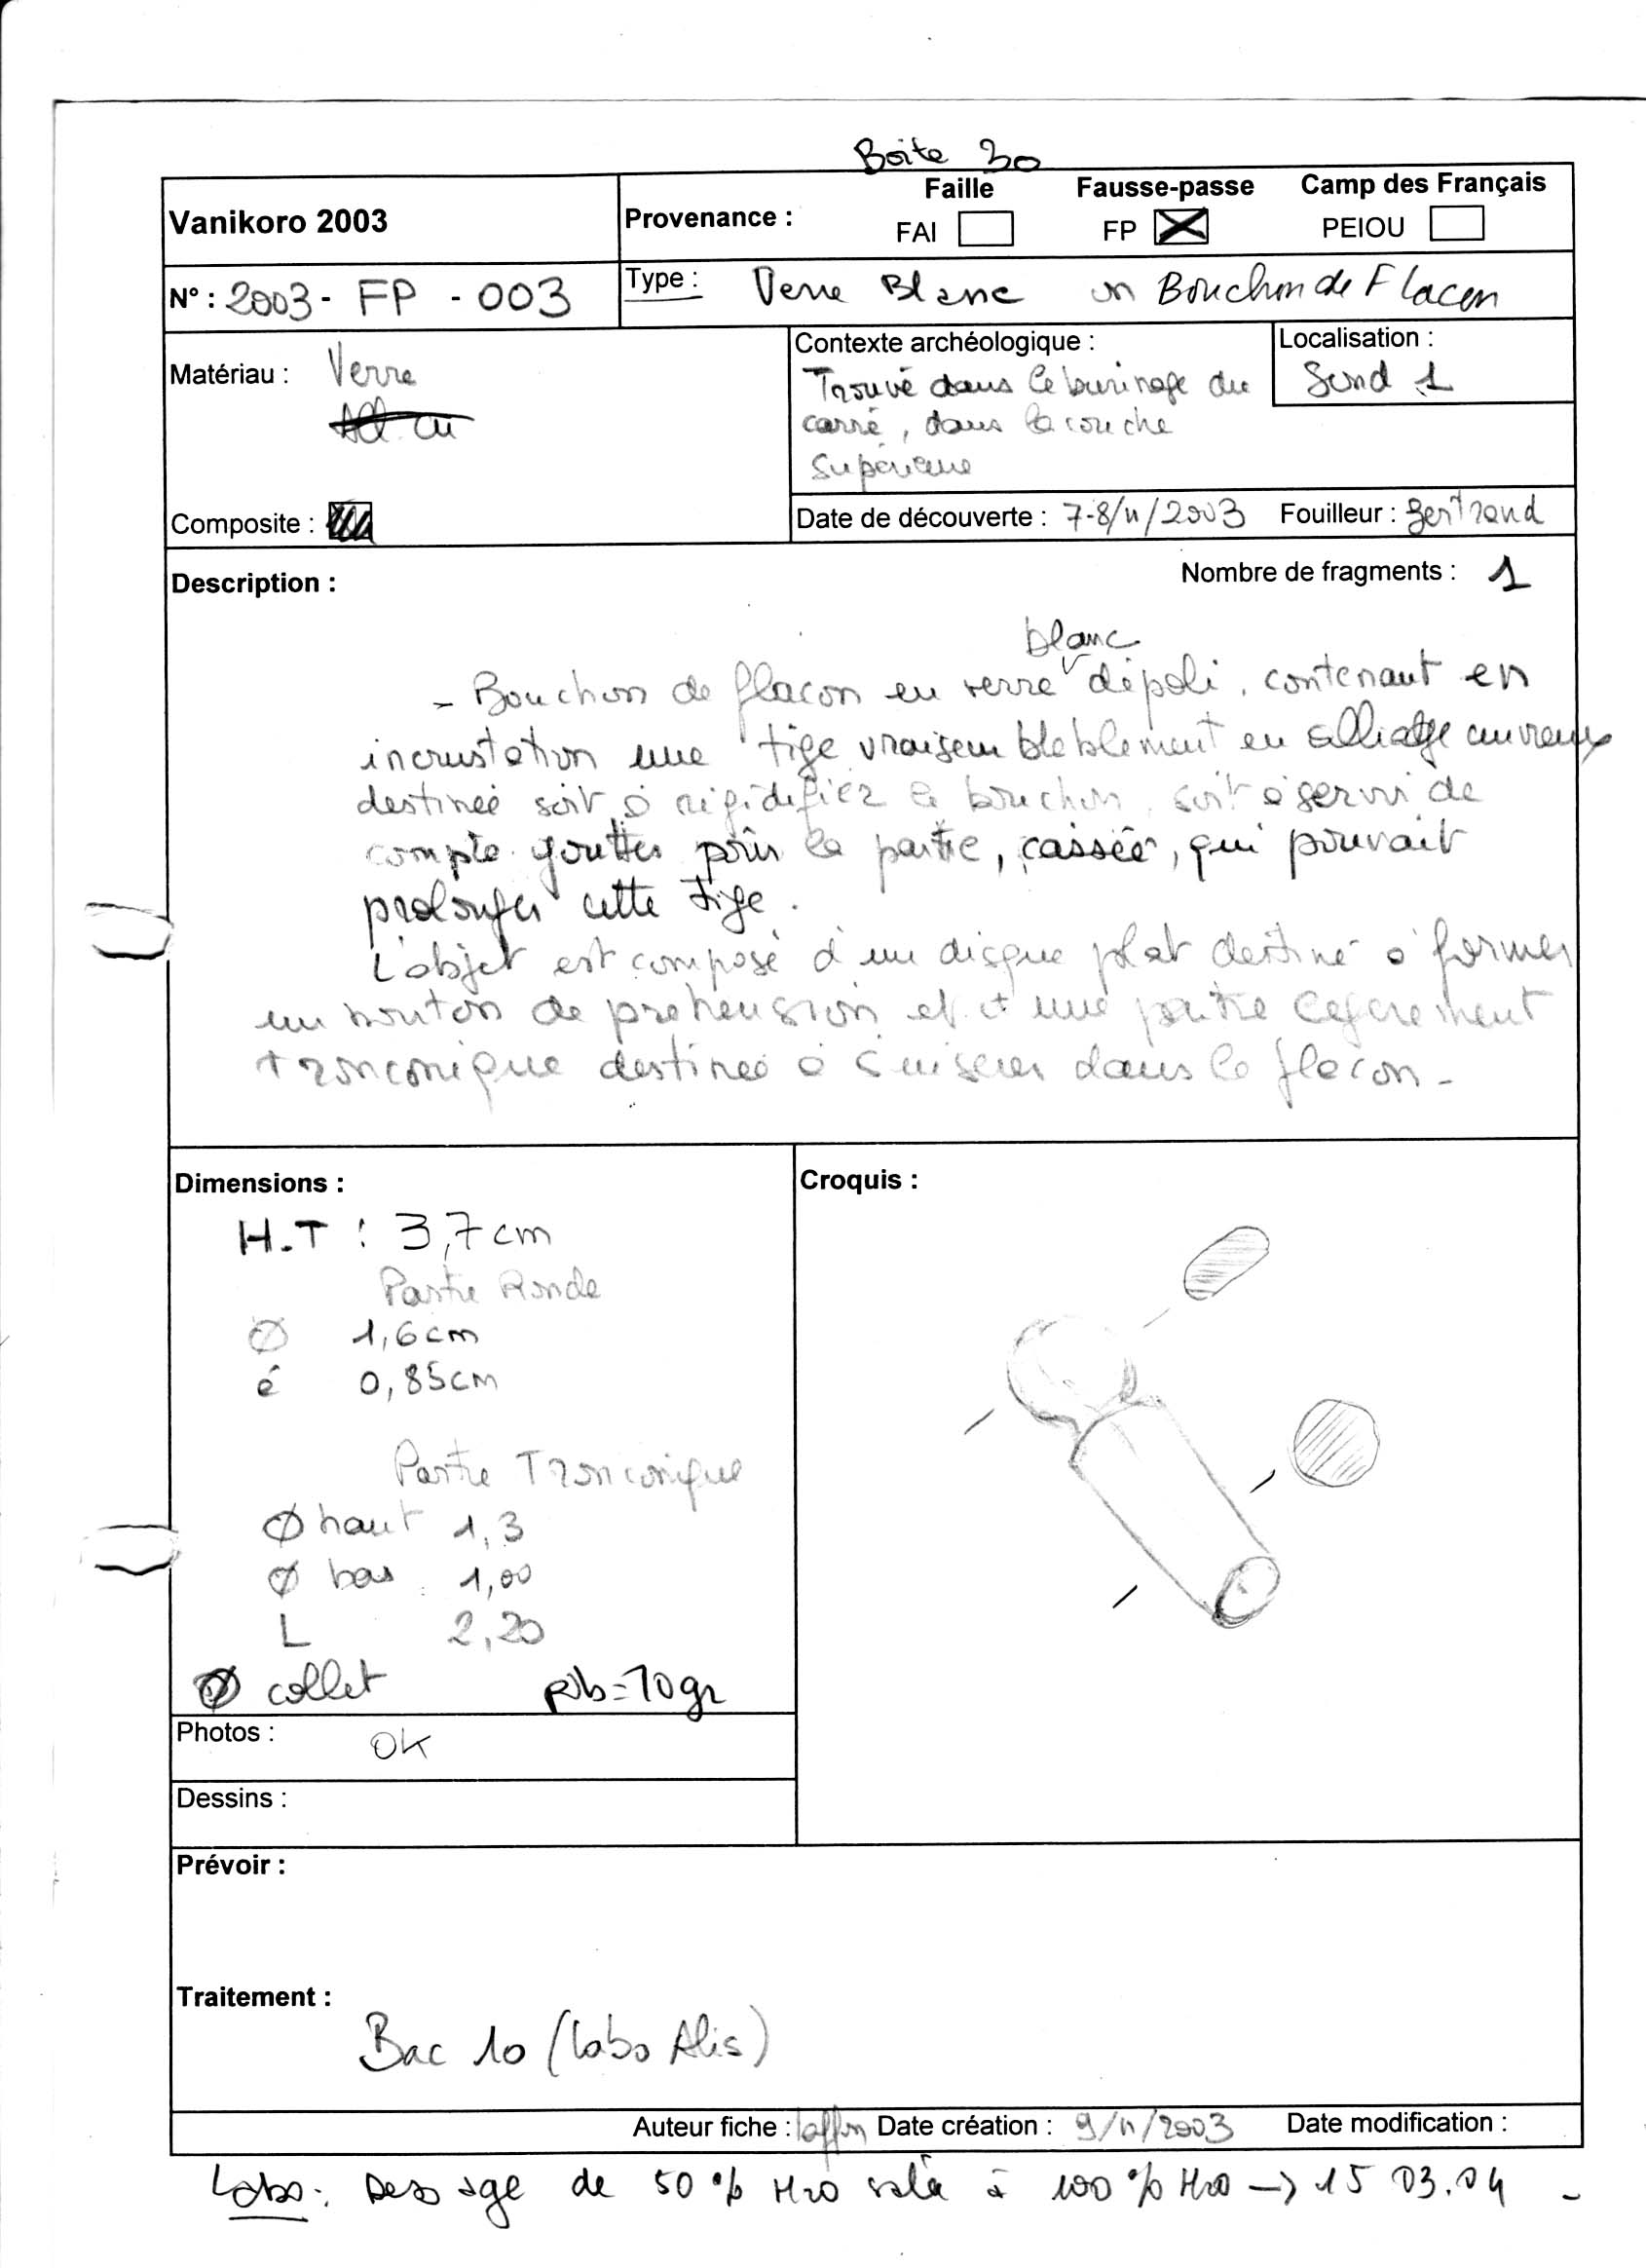 Boite 30
Vanikoro 2003
Provenance :
Faille
FAI
Fausse-passe
FP
Camp des Français
PEIOU
N° : 2003 - FP - 003
Type : Verre Blanc un Bouchon de Flacon
Matériau : Verre
Contexte archéologique :
Trouvé dans le burinage du
carré, dans la couche
supérieure
Localisation :
Sond 1
Composite :
Date de découverte : 7-8/11/2003
Fouilleur : Bertrand
Description :
Nombre de fragments : 1
blanc
- Bouchon de flacon en verre dépoli, contenant en
incrustation une tige vraisemblablement en alliage cuivreux
destinée soit à rigidifier le bouchon, soit à servir de
compte-gouttes pour la partie, cassée, qui pouvait
prolonger cette tige.
L'objet est composé d'un disque plat destiné à former
un bouton de préhension et d'une partie légèrement
tronconique destinée à s'insérer dans le flacon -
Dimensions :
H.T : 3,7 cm
Partie Ronde
Ø 1,6 cm
é 0,85 cm
Partie Tronconique
Ø haut 1,3
Ø bas : 1,00
L 2,20
collet pb = 10 gr
Croquis :
Photos : OK
Dessins :
Prévoir :
Traitement :
Bac 10 (labo Alis)
Auteur fiche :
Date création : 9/11/2003
Date modification :
Labo : Dessage de 50 % H2O salé à 100 % H2O -> 15 03.04 -